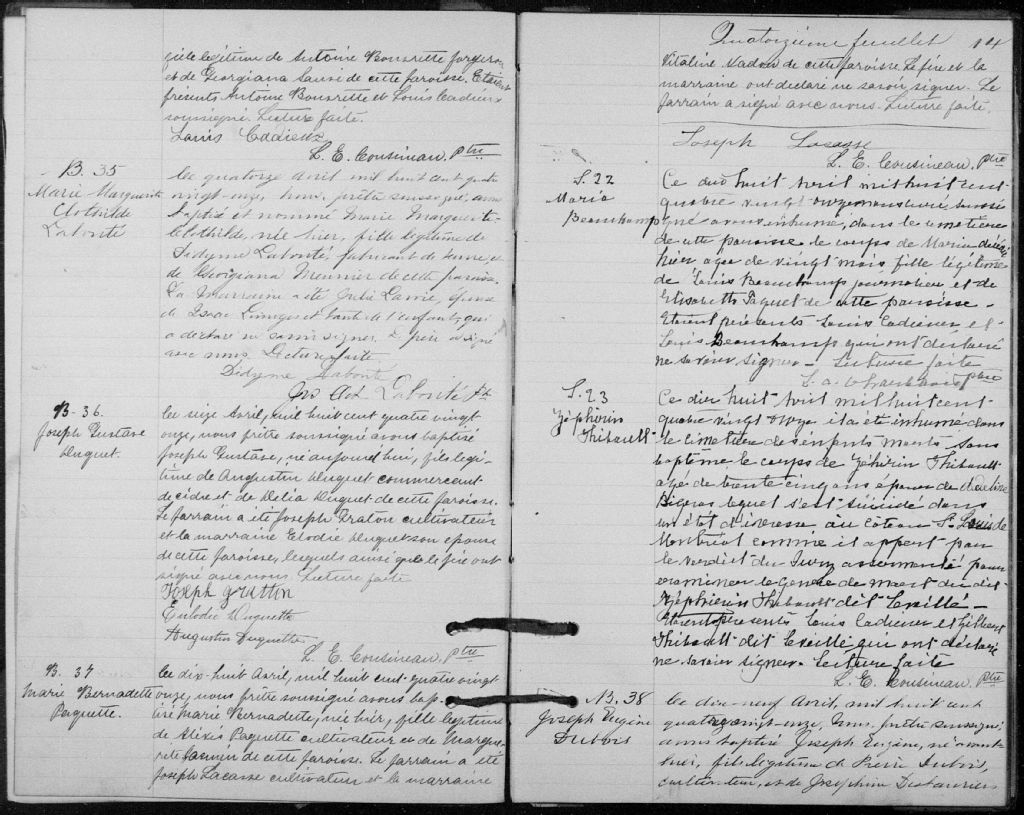 fille légitime de Antoine Bousrette forgeron
et de Georgiana Lauzé de cette paroisse. Etaient
présents Antoine Bousrette et Louis Cadieux
soussigné. Lecture faite.
Louis Cadieux
L. E. Cousineau. Ptre
B. 35
Marie Marguerite
Clothilde
Labonté
Le quatorze avril mil huit cent quatre
vingt-onze, nous, prêtre soussigné, avons
baptisé et nommé Marie Marguerite
Clothilde, née hier, fille légitime de
Didyme Labonté, fabricant de beurre, et
de Georgiana Meunier de cette paroisse.
La Marraine a été Julie épouse
de Isaac et tante de l'enfant, qui
a déclaré ne savoir signer. Le père a signé
avec nous. Lecture faite
Didyme Labonté
Labonté Ptr
B. 36.
Joseph Gustave
Duquet.
Le seize Avril, mil huit cent quatre vingt
onze, nous prêtre soussigné avons baptisé
Joseph Gustave, né aujourd'hui, fils légi-
time de Augustin Duquet commercant
de cidre et de Délia Duquet de cette paroisse.
Le parrain a été Joseph Graton cultivateur
et la marraine Elodie Duquet son épouse
de cette paroisse, lesquels ainsi que le père ont
signé avec nous. Lecture faite
Joseph Gratton
Eulodie Duquette
Augustin Duquette
L. E. Cousineau. Ptre
B. 37
Marie Bernadette
Paquette.
Le dix-huit Avril, mil huit cent quatre vingt
onze, nous prêtre soussigné avons bap-
tisé Marie Bernadette, née hier, fille légitime
de Alexis Paquette cultivateur et de Margue-
rite de cette paroisse. Le parrain a été
Joseph Lacasse cultivateur et la marraine
Quatorzième feuillet 14
Vitaline Nadon de cette paroisse. Le père et la
marraine ont déclaré ne savoir signer. Le
parrain a signé avec nous. Lecture faite.
Joseph Lacasse
L. E. Cousineau. Ptre
S. 22
Maria
Beauchamp
Ce dix huit Avril mil huit cent
quatre vingt onze nous curé soussi
gné avons inhumé, dans le cimetière
de cette paroisse le corps de Maria décédée
hier agée de vingt mois fille légitime
de Louis Beauchamp journalier et de
Elisabeth Paquet de cette paroisse -
Etaient présents Louis Cadieux et
Louis Beauchamp qui ont déclaré
ne savoir signer - Lecture faite
ptre
S. 23
Zéphirin
Thibault
Ce dix huit Avril mil huit cent
quatre vingt onze il a été inhumé dans
le cimetière des enfants morts sans
baptême le corps de Zéphirin Thibault
agé de trente cinq ans époux de Adeline
Bigras lequel s'est suicidé dans
un état d'ivresse au côteau St. Louis de
Montréal comme il appert par
le verdict du Jury assermenté pour
examiner le genre de mort du dit
Zéphirin Thibault dit Léveillé -
Etaient présents Louis Cadieux et Gilbert
Thibault dit Léveillé qui ont déclaré
ne savoir signer. Lecture faite
L. E. Cousineau. Ptre
B. 38
Joseph Eugène
Dubois
Le dix-neuf Avril, mil huit cent
quatre vingt-onze, nous, prêtre soussigné,
avons baptisé Joseph Eugène, né avant
hier, fils légitime de Pierre Dubois,
cultivateur, et de Joséphine Deslauriers